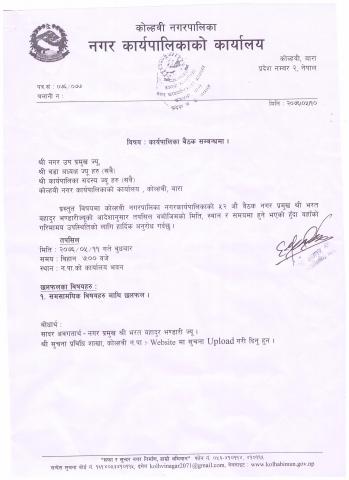 कोल्हवी नगरपालिका
नगर कार्यपालिकाको कार्यालय
कोल्हवी, बारा
प्रदेश नम्बर २, नेपाल
प.सं : ०७५/०७६
चलानी न :
मिति : २०७६/०५/१०
विषय : कार्यपालिका बैठक सम्बन्धमा ।
श्री नगर उप प्रमुख ज्यू,
श्री वडा अध्यक्ष ज्यू हरु (सबै)
श्री कार्यपालिका सदस्य ज्यू हरु (सबै)
कोल्हवी नगर कार्यपालिकाको कार्यालय , कोल्हवी, बारा
प्रस्तुत विषयमा कोल्हवी नगरपालिका नगरकार्यपालिकाको ५२ औं बैठक नगर प्रमुख श्री भरत
बहादुर भण्डारीज्यूको आदेशानुसार तपसिल बमोजिमको मिति, स्थान र समयमा हुने भएको हुँदा यहाँको
गरिमामय उपस्थितिको लागि हार्दिक अनुरोध गर्दछु ।
तपसिल
मिति : २०७६/०५/११ गते बुधबार
समय : बिहान ७:०० बजे
स्थान : न.पा.को कार्यालय भवन
छलफलका विषयहरु :
१. समसामयिक विषयहरु माथि छलफल ।
बोधार्थ :
सादर अवगतार्थ - नगर प्रमुख श्री भरत बहादुर भण्डारी ज्यू ।
श्री सूचना प्रविधि शाखा, कोल्हवी न.पा :- Website मा सूचना Upload गरी दिनु हुन ।
"सफा र सुन्दर नगर निर्माण, हाम्रो अभियान" फोन नं.
kolhvinagar2071@gmail.com, वेबसाइट : www.kolhabimun.gov.np